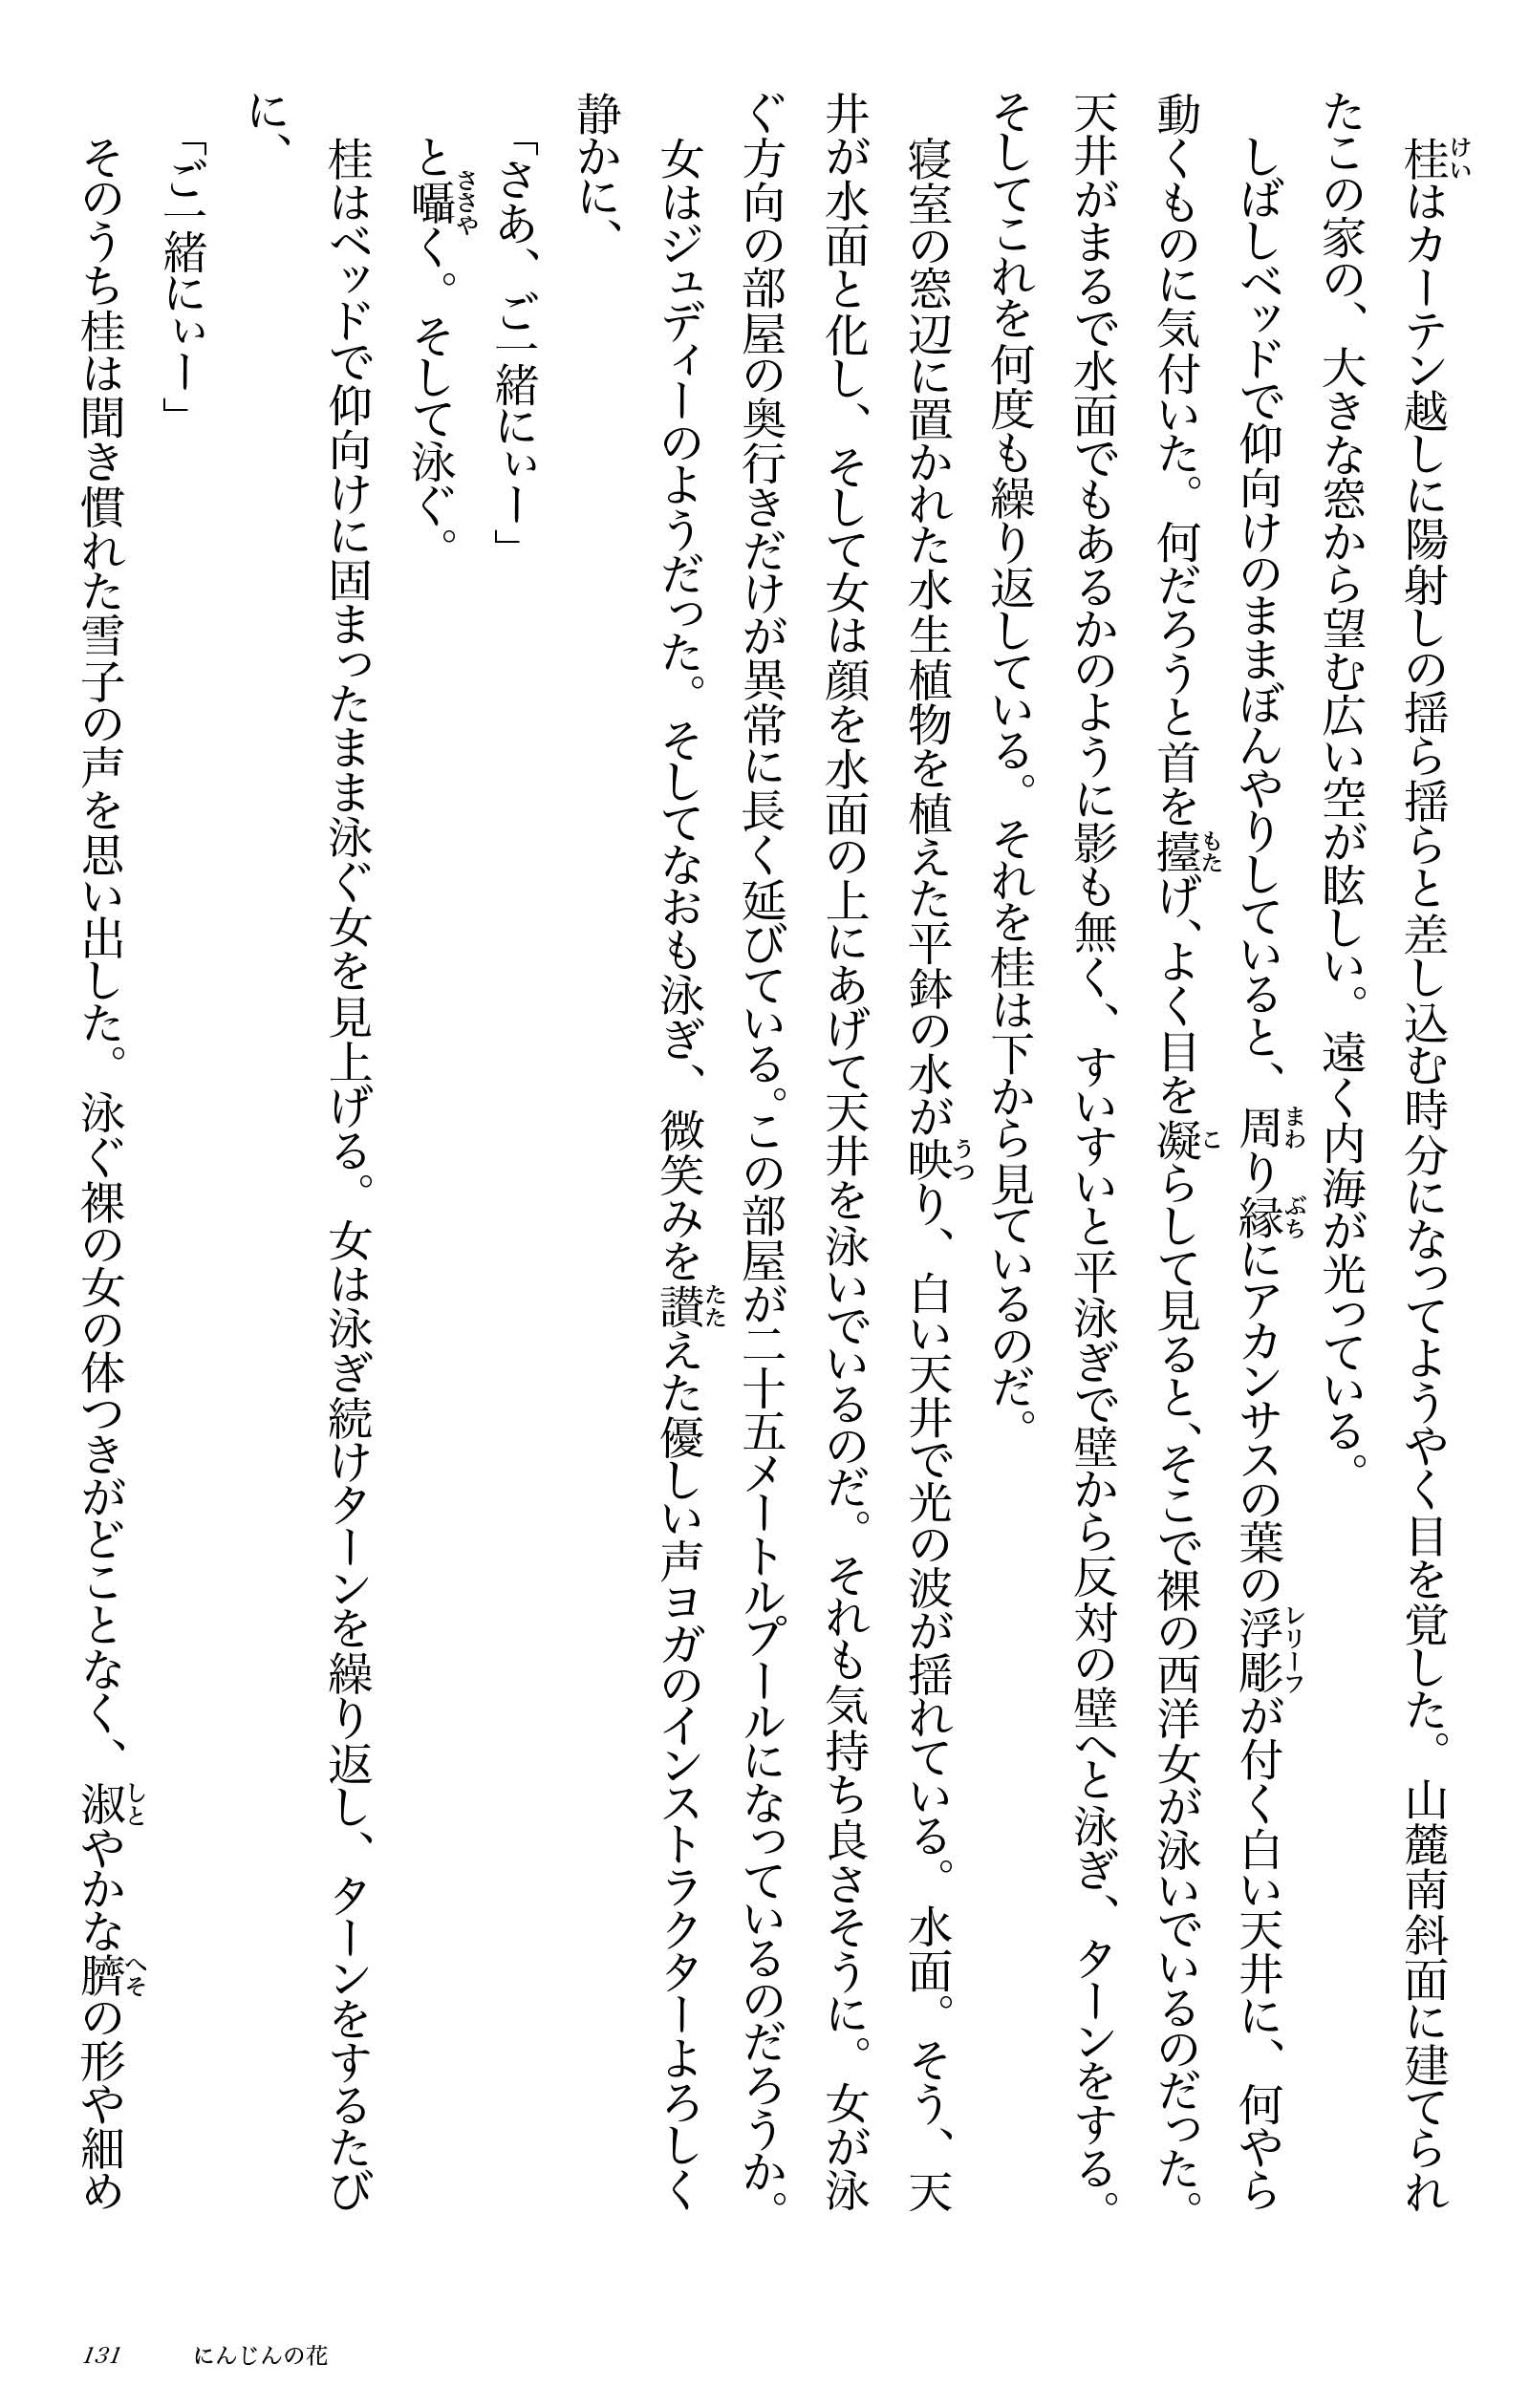 桂はカーテン越しに陽射しの揺ら揺らと差し込む時分になってようやく目を覚した。山麓南斜面に建てられ
たこの家の、大きな窓から望む広い空が眩しい。遠く内海が光っている。
しばしベッドで仰向けのままぼんやりしていると、周り縁にアカンサスの葉の浮彫が付く白い天井に、何やら
動くものに気付いた。何だろうと首を擡げ、よく目を凝らして見ると、そこで裸の西洋女が泳いでいるのだった。
天井がまるで水面でもあるかのように影も無く、すいすいと平泳ぎで壁から反対の壁へと泳ぎ、ターンをする。
そしてこれを何度も繰り返している。それを桂は下から見ているのだ。
寝室の窓辺に置かれた水生植物を植えた平鉢の水が映り、白い天井で光の波が揺れている。水面。そう、天
井が水面と化し、そして女は顔を水面の上にあげて天井を泳いでいるのだ。それも気持ち良さそうに。女が泳
ぐ方向の部屋の奥行きだけが異常に長く延びている。この部屋が二十五メートルプールになっているのだろうか。
女はジュディーのようだった。そしてなおも泳ぎ、微笑みを讃えた優しい声ヨガのインストラクターよろしく
静かに、
「さあ、ご一緒にぃー」
と囁く。そして泳ぐ。
桂はベッドで仰向けに固まったまま泳ぐ女を見上げる。女は泳ぎ続けターンを繰り返し、ターンをするたび
に、
「ご一緒にぃー」
そのうち桂は聞き慣れた雪子の声を思い出した。泳ぐ裸の女の体つきがどことなく、淑やかな臍の形や細め
けい
まわ
ぶち
レリーフ
もた
こ
うつ
たた
ささや
しと
へそ
131 にんじんの花